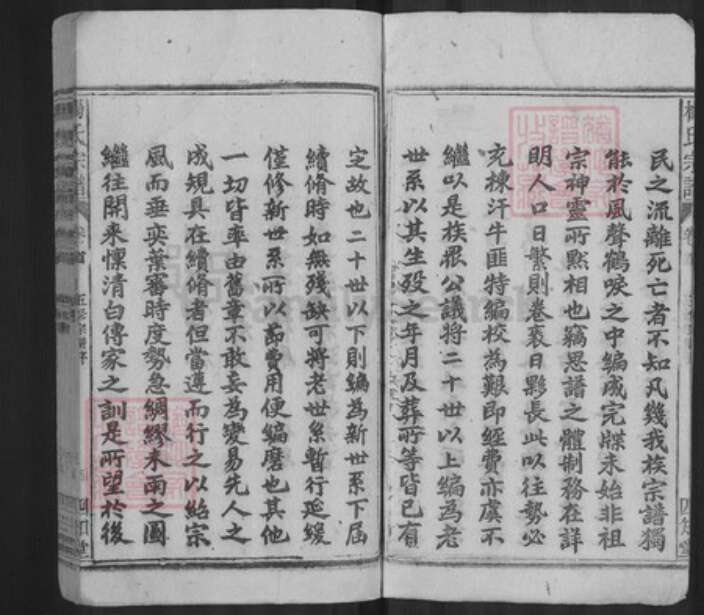 民之流離死亡者不知凡幾我族宗譜獨
能於風聲鶴唳之中編成完牒未始非祖
宗神靈所默相也竊思譜之體制務在詳
明人口日繁則卷袠日夥長此以往勢必
充棟汗牛匪特編校為艱即經費亦虞不
繼以是族眾公議將二十世以上編為老
世系以其生歿之年月及葬所等皆已有
定故也二十世以下則編為新世系下屆
續脩時如無殘缺可將老世系暫行延緩
僅修新世系所以節費用便編磨也其他
一切皆率由舊章不敢妄為變易先人之
成規具在續脩者但當遵而行之以紹宗
風而垂奕葉審時度勢急綢繆未雨之圖
繼往開來懍清白傳家之訓是所望於後
楊氏宗譜
四知堂